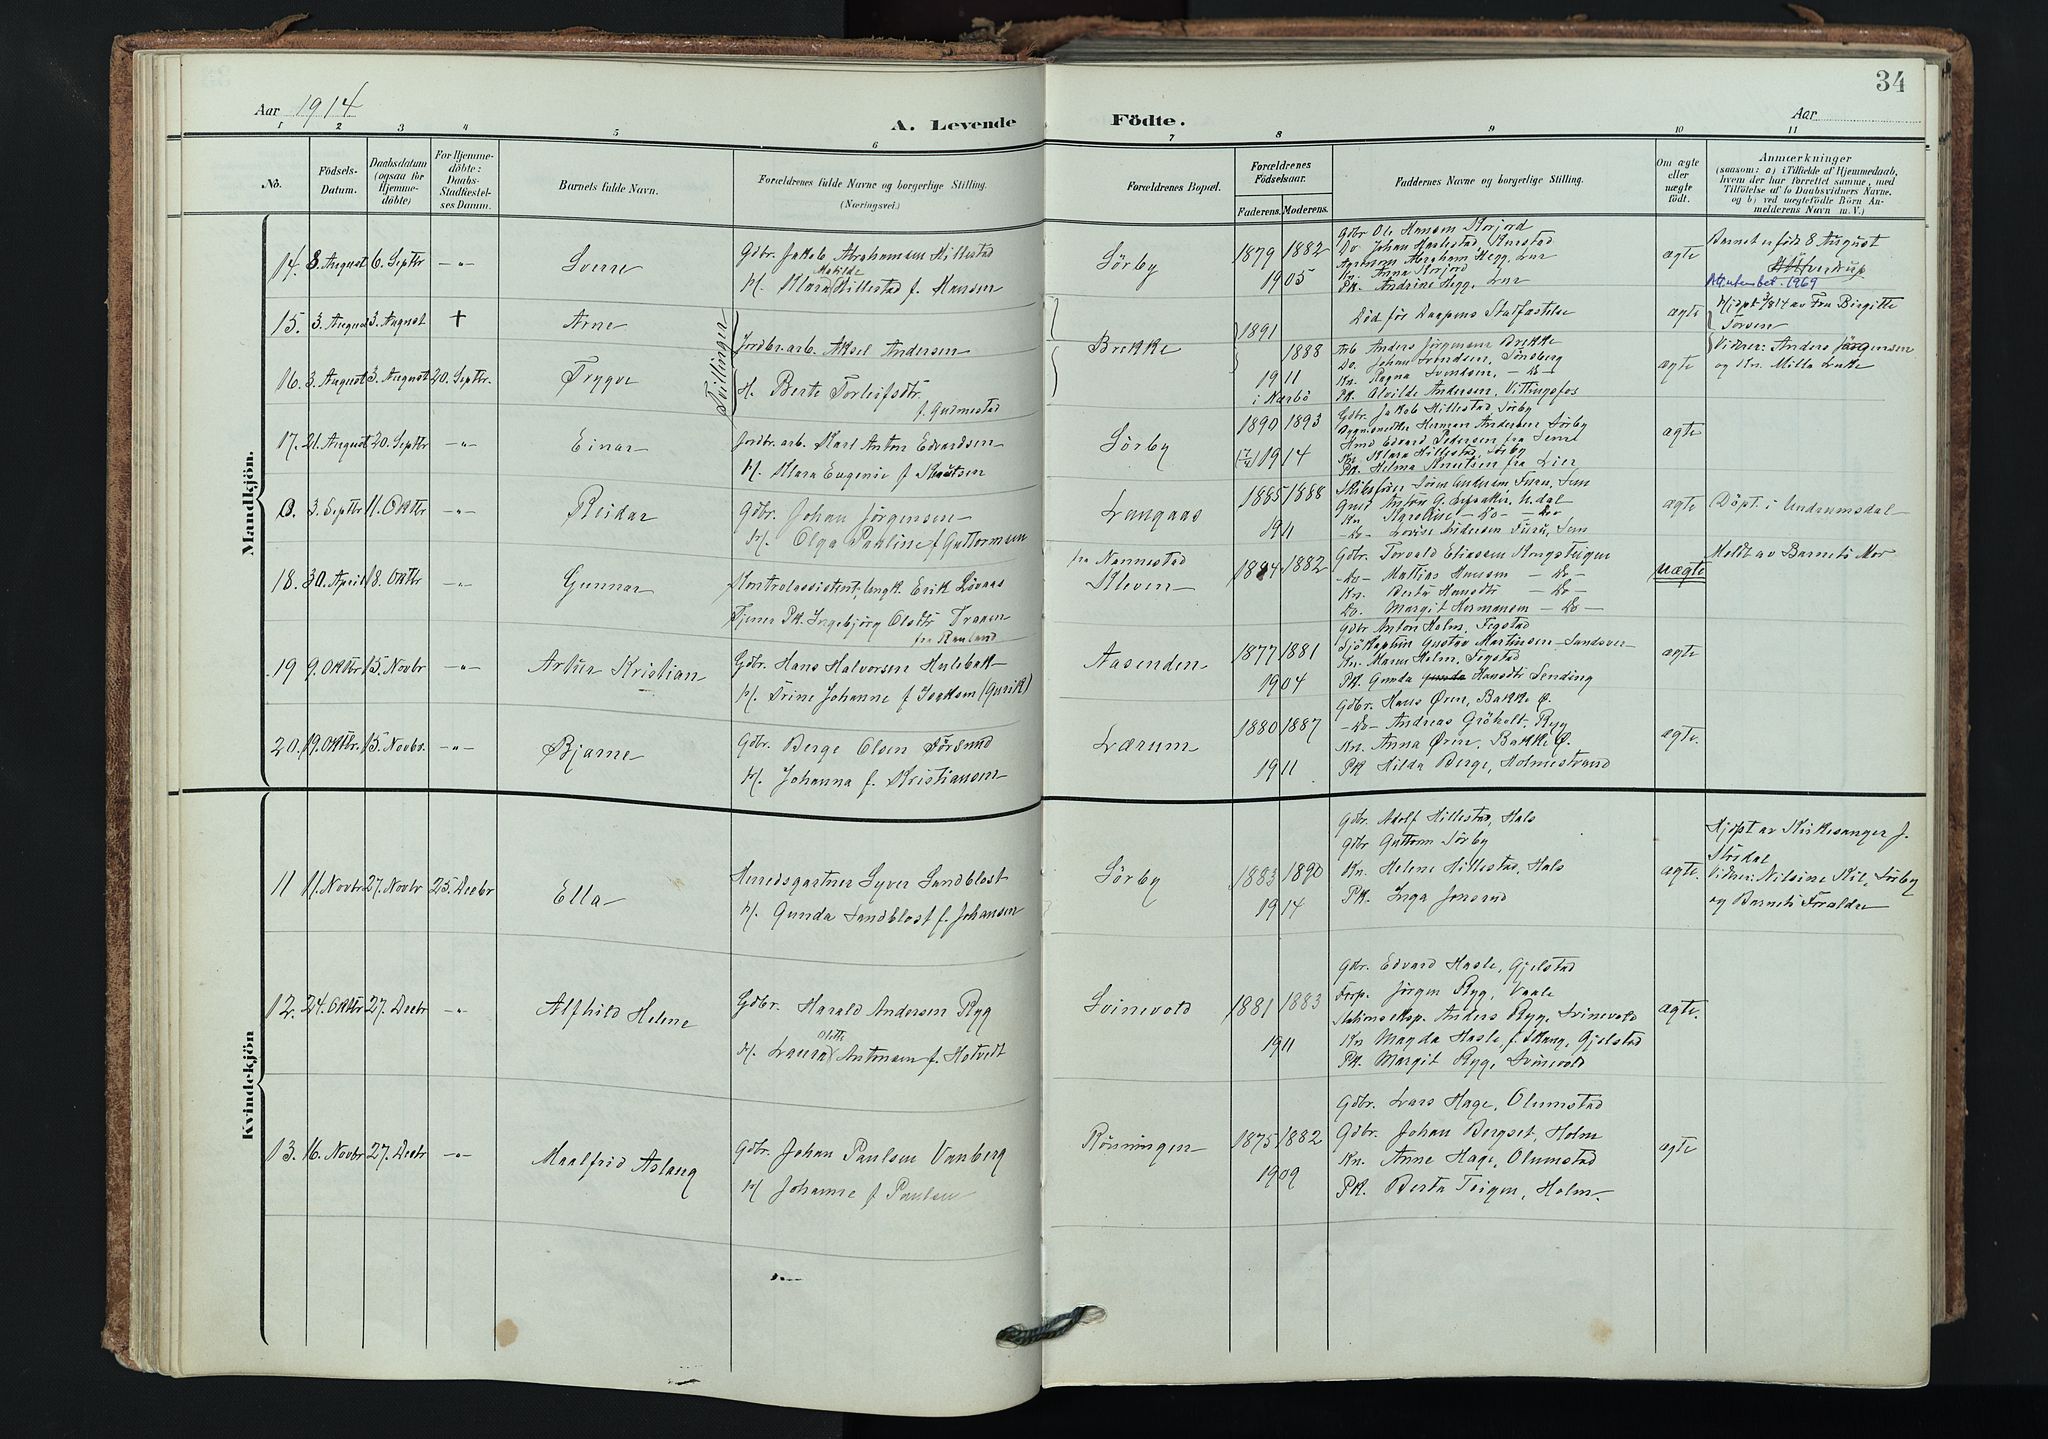 34
Aar 1914
A. Levende
Födte.
Aar
1 2 3 4 5 6 7 8 9 10 11
No.
Födsels-Datum.
Daabsdatum (ogsaa for Hjemme-döbte)
For Hjemme-döbte: Daabs-Stadfæstel-ses Datum.
Barnets fulde Navn.
Forældrenes fulde Navne og borgerlige Stilling. (Næringsvei.)
Forældrenes Bopæl.
Forældrenes Födselsaar.
Faderens. Moderens.
Faddernes Navne og borgerlige Stilling.
Om ægte eller uægte födt.
Anmærkninger
(saasom: a) i Tilfælde af Hjemmedaab, hvem der har forrettet samme, med Tilföielse af to Daabsvidners Navne, og b) ved uægtefödte Börn An-melderens Navn m. V.)
Mandkjön.
14. 8. August 6. Septbr -"- Sverre
Gdbr. Jakob Abrahamsen Hillestad
H. Klara Matilde Hillestad f. Hansen
Sörby 1879 1882
1905
Gdbr Ole Hansen Korjord
Kn. Anna Korjord
Pk. Andrine Hegg, Lur
ægte
Barnet er född 8 August
15. 3. August 3. August + Arne
Tvillinger
Jordbr.arb. Aksel Andersen
Brekke 1891
Död för Daapens Stadfæstelse
ægte
Hjdpt 3/8 14 av Fru Birgitte
16. 3. August 3. August 20. Septbr. Trygve
H. Berte Torleifsdtr.
f. Gudmestad
1888
1911
Arb Anders Jörgensen Brekke
Do. Johan Svendsen, Tönsberg
Kn. Ragna Svendsen, -Do-
Pk. Alvilde Andersen, Vittingsfos
ægte
Vidner: Anders Jörgensen
17. 21. August 20. Septbr -"- Einar
Jordbr.arb. Karl Anton Edvardsen
H. Klara Eugenie f. Knutsen
Sörby 1890 1893
1914
Gdbr. Jakob Hillestad, Sörby
Herman Andersen Sörby
Edvard Pedersen fra Sem
Kn. Klara Hillestad, Sörby
Pk. Helma Knutsen fra Lier
ægte
0. 3. Septbr 11. Oktbr -"- Reidar
Gdbr. Johan Jörgensen
H. Olga Pauline f. Guttormsen
Langaas 1885 1888
1911
ægte
(Döpt i Undrumsdal-
18. 30. April 18. Oktbr -"- Gunnar
Kontrolassistent, ungk. Erik Lövaas
fra Nannestad
Tjener Pk. Ingebjörg Olsdtr Traaen
fra Rauland
Kleven 1894 1882
Gdbr. Torvald Eliassen Kongsteigen
-Do- Mattias Hansen -Do-
Kn. Berte Hansdtr -Do-
Do. Margit Hermansen -Do-
uægte
Meldt av Barnets Mor
19 9. Oktbr 15. Novbr -"- Artur Kristian
Gdbr. Hans Halvorsen Hulebak
H. Trine Johanne f. Isaksen (Gurik)
Aasenden 1877 1881
1904
Gdbr Anton Holm, Fegstad
Sjökaptein Gustav Martinsen
Kn. Maren Holm, Fegstad
Pk. Gunda Hansdtr Sending
ægte
20. 19. Oktbr. 15. Novbr. -"- Bjarne
Gdbr. Berge Olsen Försund
H. Johanna f. Kristiansen
Lærum 1880 1887
1911
Gdbr. Hans Ören, Bakke Ö.
-Do- Andreas Gröholt, Ryg
Kn. Anna Ören, Bakke Ö.
Pk Hilda Berge, Holmestrand
ægte
Kvindekjön
11 11. Novbr 27. Novbr 25. Decbr Ella
Herredsgartner Syver Sandblost
H. Gunda Sandblost f. Johansen
Sörby 1883 1890
1914
Gdbr. Adolf Hillestad, Hals
Gdbr Guttorm Sörby
Kn. Helene Hillestad, Hals
Pk. Inga Jonsrud
ægte.
Hjdpt av Kirkesanger J.
og Barnets Foraldre
12. 24. Oktbr 27. Decbr -"- Alfhild Helene
Gdbr. Harald Andersen Ryg
H. Laura Olette Antonsen f. Hotvedt
Svinevold 1881 1883
1911
Gdbr. Edvard Hasle, Gjelstad
Forp. Jörgen Ryg, Vaale
Stationseksp. Anders Ryg, Svinevold
Kn Magda Hasle, f. Skaug, Gjelstad
Pk. Margit Ryg, Svinevold
ægte.
13. 16. Novbr 27. Decbr -"- Maalfrid Aslaug
Gdbr. Johan Paulsen Vanberg
H. Johanne f. Paulsen
Rönningen 1875 1882
1909
Gdbr. Lars Hage, Olumstad
Gdbr. Johan Bergset, Holm
Kn. Anne Hage, Olumstad
Pk. Berta Teigen, Holm.
ægte